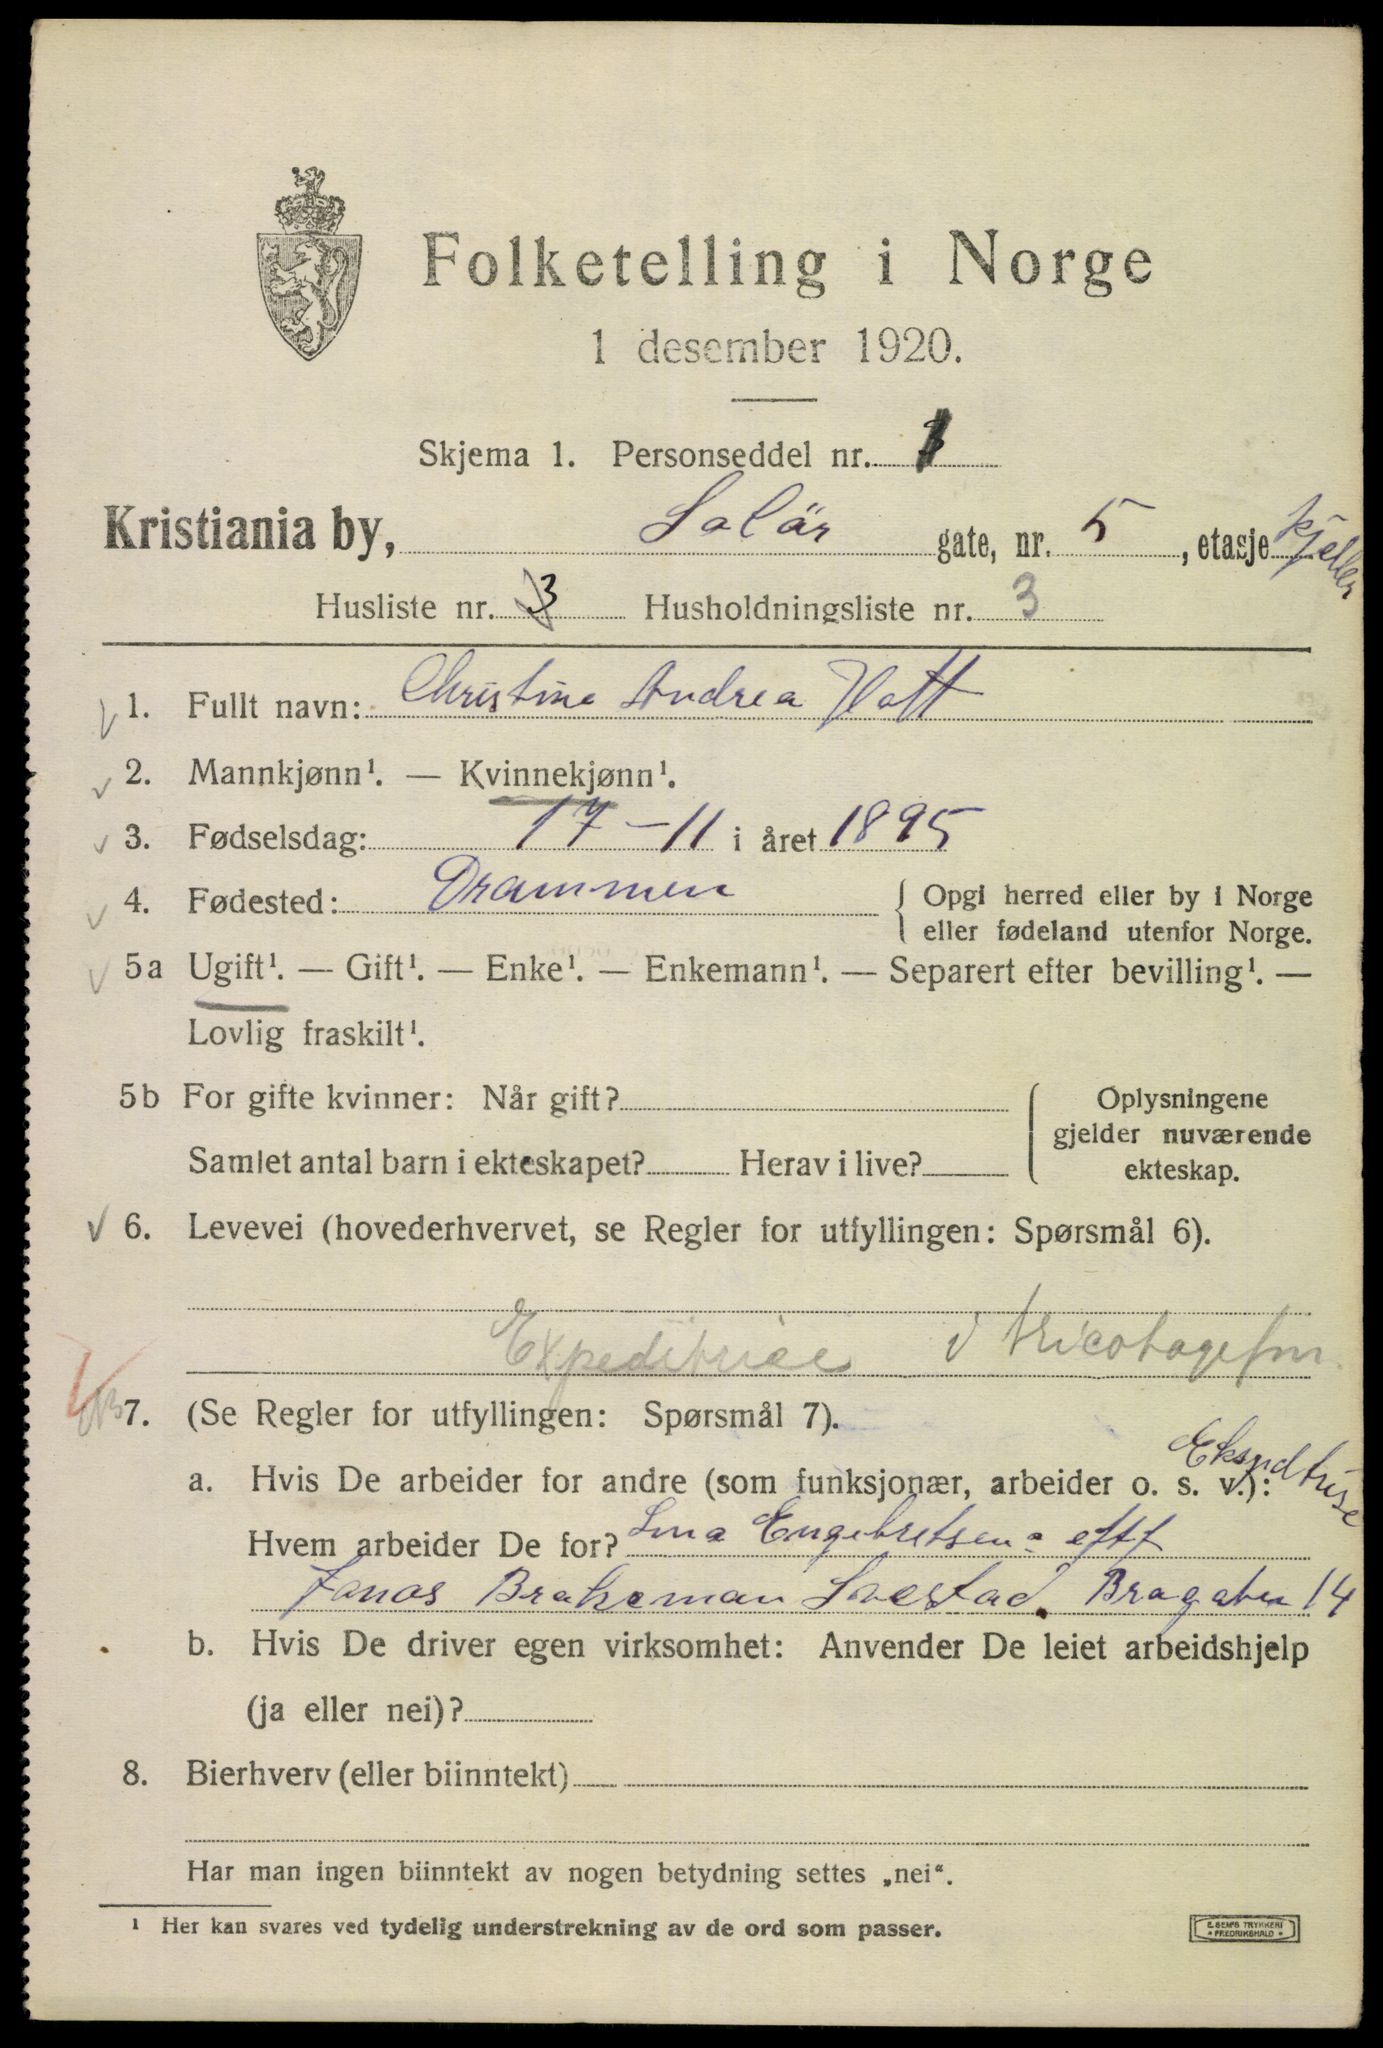 Folketelling i Norge
1 desember 1920.
Skjema 1. Personseddel nr.
Kristiania by, Solör gate, nr. 5, etasje kjeller
Husliste nr. 3 Husholdningsliste nr. 3
1. Fullt navn: Christine Andrea Hatt
2. Mannkjønn¹. — Kvinnekjønn¹.
3. Fødselsdag: 17-11 i året 1895
4. Fødested: Drammen { Opgi herred eller by i Norge
eller fødeland utenfor Norge.
5a Ugift¹. — Gift¹. — Enke¹. — Enkemann¹. — Separert efter bevilling¹. —
Lovlig fraskilt¹.
5b For gifte kvinner: Når gift? { Oplysningene
gjelder nuværende
Samlet antal barn i ekteskapet? Herav i live?
ekteskap.
6. Levevei (hovederhvervet, se Regler for utfyllingen: Spørsmål 6).
Expeditrice i tricotagefor.
7. (Se Regler for utfyllingen: Spørsmål 7).
a. Hvis De arbeider for andre (som funksjonær, arbeider o. s. v.):
Hvem arbeider De for? Engebretsens eftf
Jonas Bragaten 14
b. Hvis De driver egen virksomhet: Anvender De leiet arbeidshjelp
(ja eller nei)?
8. Bierhverv (eller biinntekt)
Har man ingen biinntekt av nogen betydning settes „nei“.
¹ Her kan svares ved tydelig understrekning av de ord som passer.
E. SEM'S TRYKKERI
FREDRIKSHALD